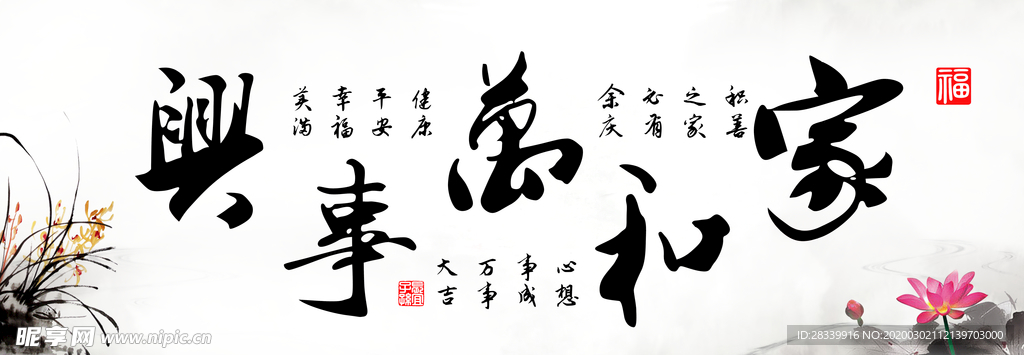 福
家和萬事興
积善
之家
必有
余庆
健康
平安
幸福
美满
心想
事成
万事
大吉
昵享网 www.nipic.cn
ID:28339916 NO:20200302112139703000